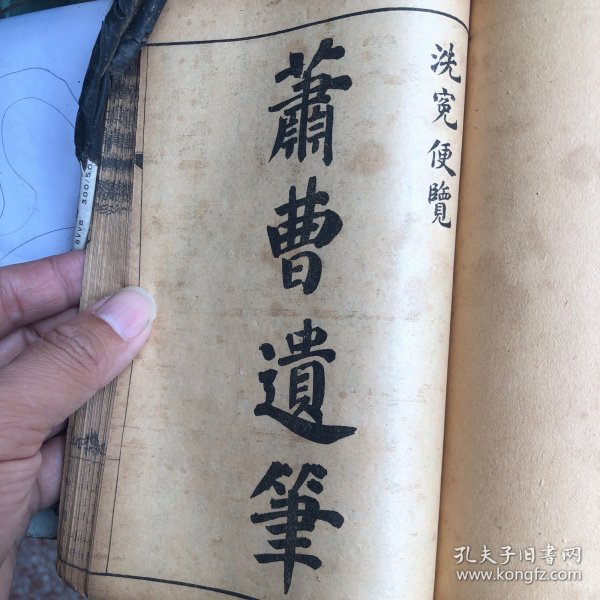 洗冤便覽
蕭曹遺筆
孔夫子旧书网
www.kongfz.com